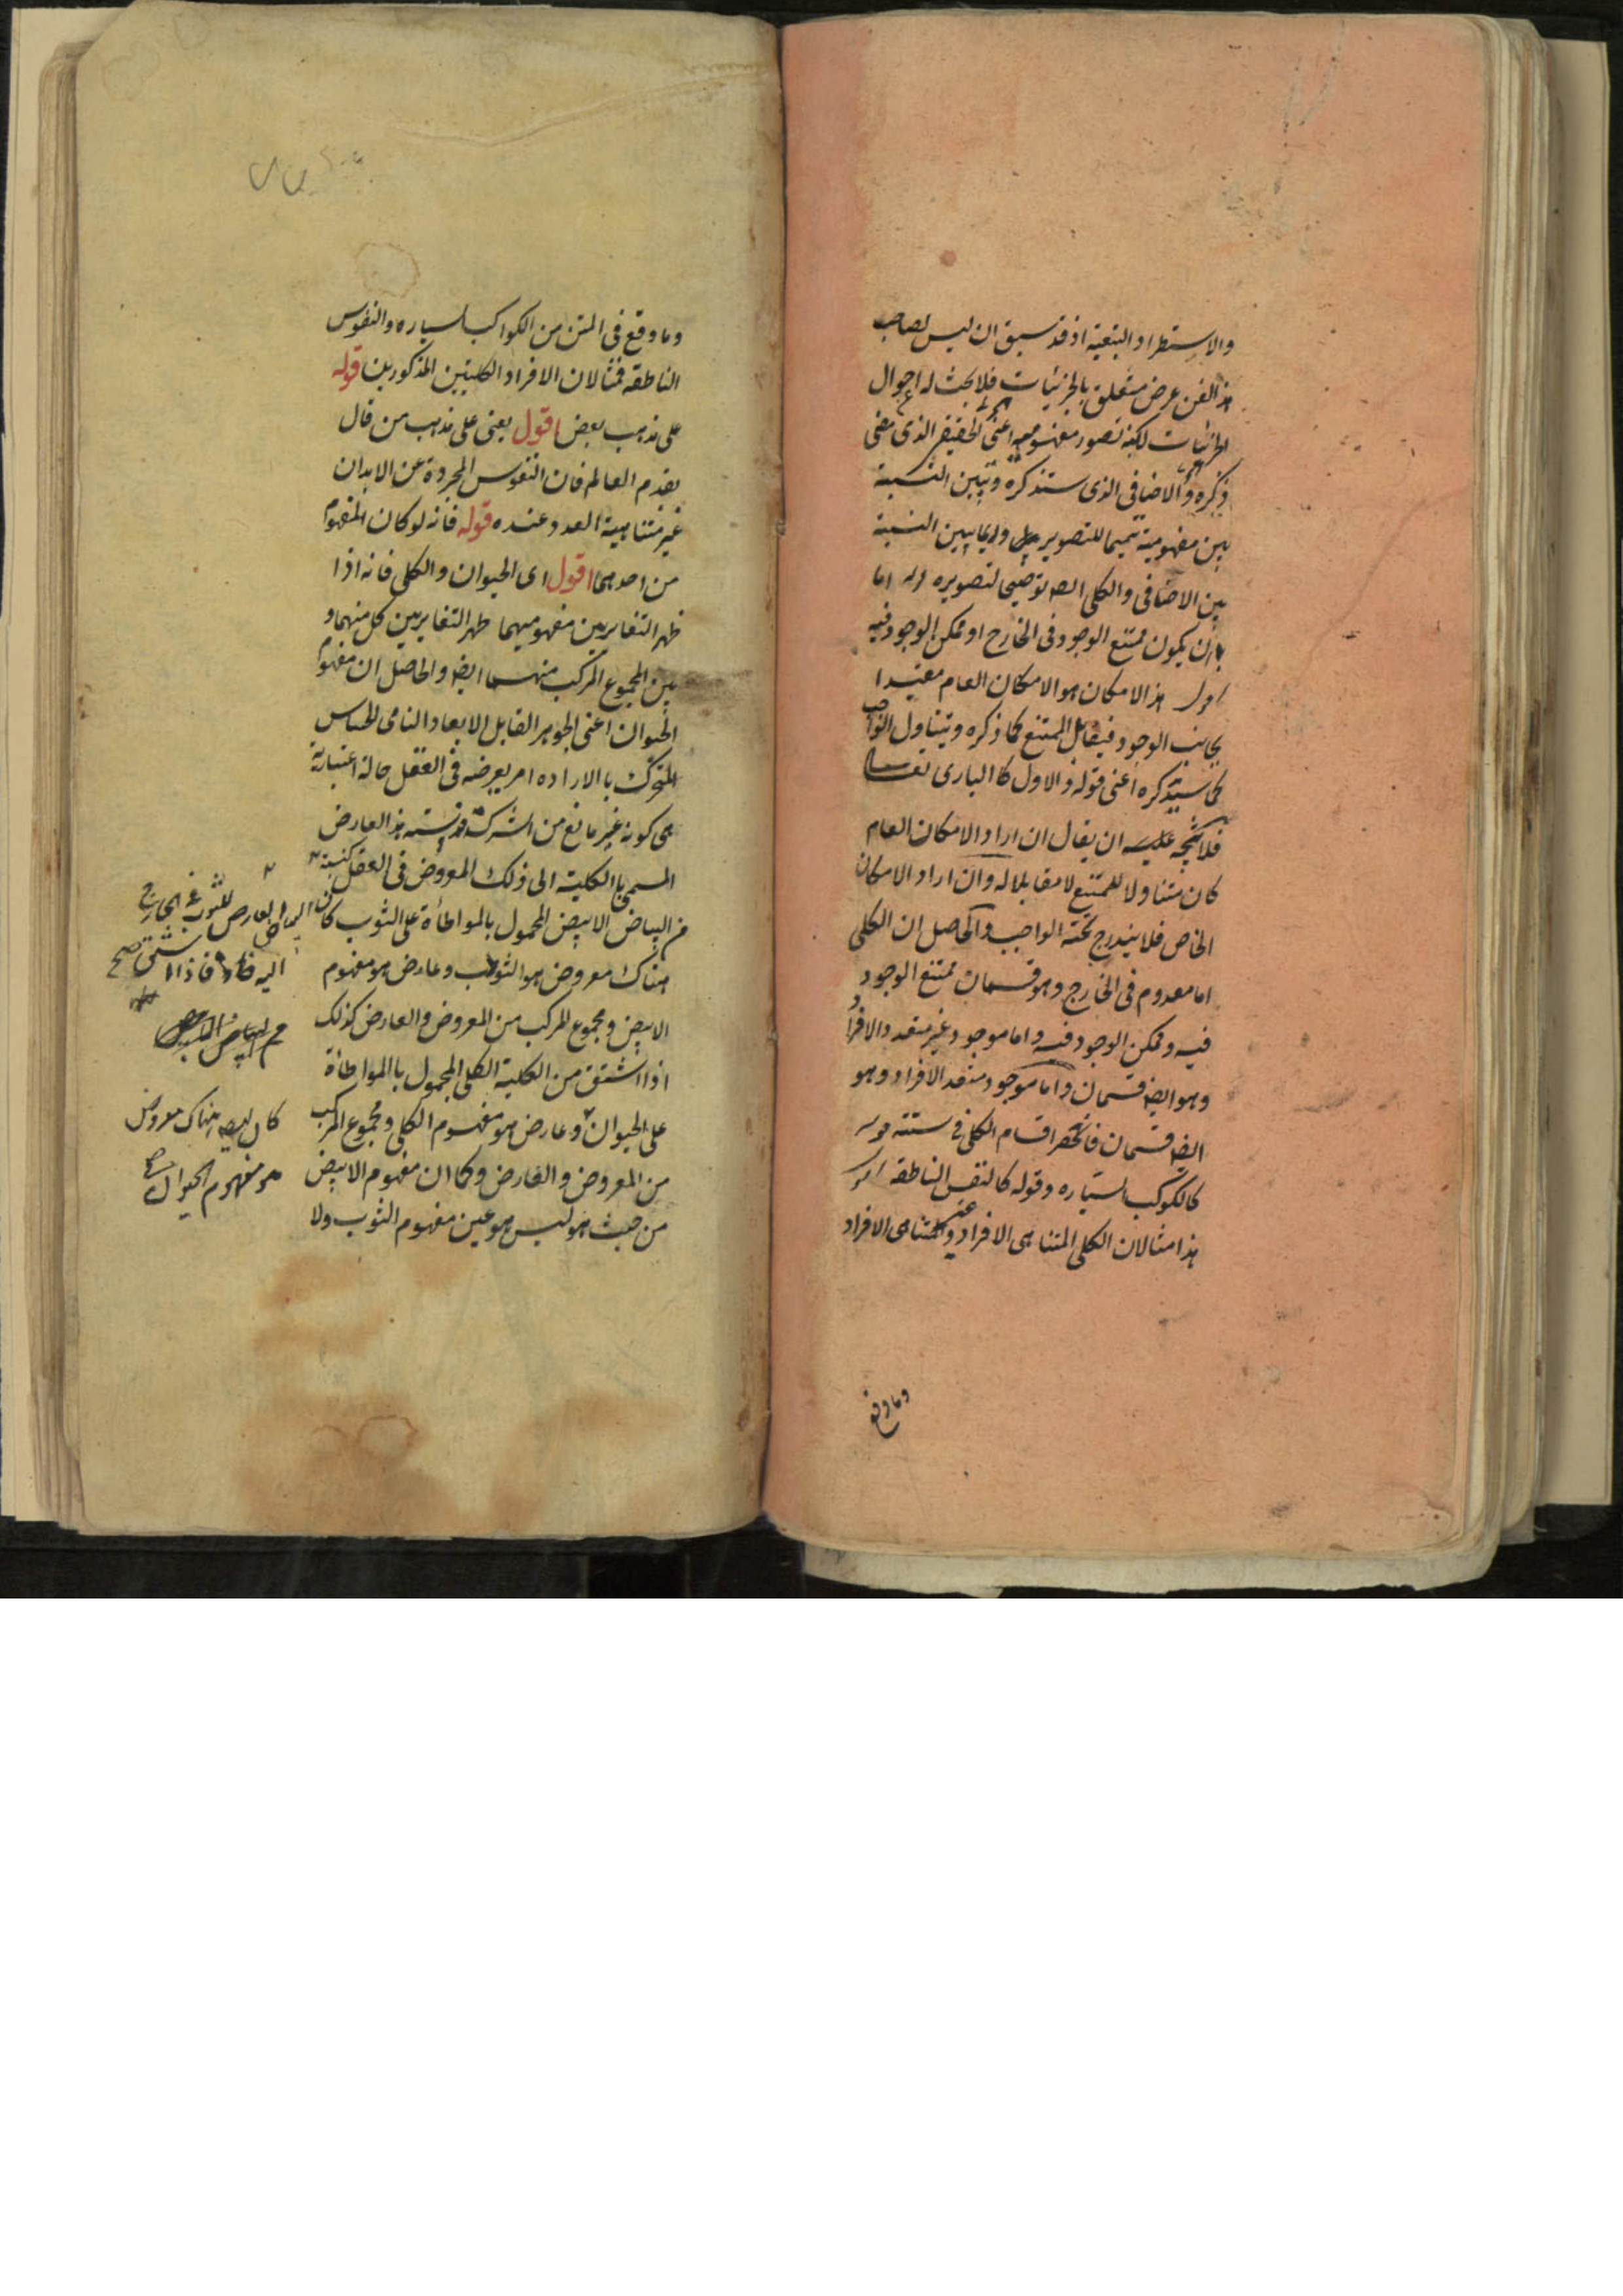 والاستطراد والتبعية اذ قد سبق ان ليس لصاحب
هذا الفن غرض متعلق بالجزئيات فلا بحث له احوال
الجزئيات لكنه تصور مفهوميه اعنى الحقيقى الذى مضى
ذكره والاضافى الذى ستذكره وتبين النسبة
بين مفهوميه تتميما للتصوير وربما يبين النسبة
بين الاضافى والكلى ايضا توضيحا لتصويره قوله اما
بان يكون ممتنع الوجود فى الخارج او ممكن الوجود فيه
اقول هذا الامكان هو الامكان العام مقيدا
بجانب الوجود فيقابل الممتنع كما ذكره ويتناول الواجب
كما سيذكره اعنى قوله والاول كالبارى تعالى
فلا يتجه عليه ان يقال ان اراد الامكان العام
كان متناولا للممتنع لا مقابلا له وان اراد الامكان
الخاص فلا يندرج تحته الواجب والحاصل ان الكلى
اما معدوم فى الخارج وهو قسمان ممتنع الوجود
فيه وممكن الوجود فيه واما موجود غير متعدد الافراد
وهو ايضا قسمان واما موجود متعدد الافراد وهو
ايضا قسمان فانحصر اقسام الكلى فى ستة قوله
كالكوكب السياره وقوله كالنفس الناطقة اقول
هذا مثالان الكلى المتناهى الافراد وغير المتناهى الافراد
وما وقع
وما وقع فى المتن من الكواكب السياره والنفوس
الناطقه فمثالان الافراد الكليتين المذكورين قوله
على مذهب بعض اقول يعنى على مذهب من قال
بقدم العالم فان النفوس المجردة عن الابدان
غير متناهية العدد عنده قوله فانه لو كان المفهوم
من احدهما اقول اى الحيوان والكلى فانه اذا
ظهر التغاير بين مفهوميهما ظهر التغاير بين كل منهما و
بين المجموع المركب منهما ايضا والحاصل ان مفهوم
الحيوان اعنى الجوهر القابل الابعاد النامى الحساس
المتحرك بالاراده امر يعرضه فى العقل حالة اعتبارية
هى كونه غير مانع من الشركة فنسبة هذا العارض
المسمى بالكلية الى ذلك المعروض فى العقل كنسبة
من البياض الابيض المحمول بالمواطأة على الثوب كان
هناك معروض هو الثوب وعارض هو مفهوم
الابيض ومجموع المركب من المعروض والعارض كذلك
اذا اشتق من الكلية الكلى المحمول بالمواطأة
على الحيوان وعارض هو مفهوم الكلى ومجموع المركب
من المعروض والعارض وكما ان مفهوم الابيض
من حيث هو ليس هو عين مفهوم الثوب ولا
البياض العارض للثوب فى الخارج
اليه فاذا اشتق صح
كان ايضا هناك معروض
هو مفهوم الحيوان صح